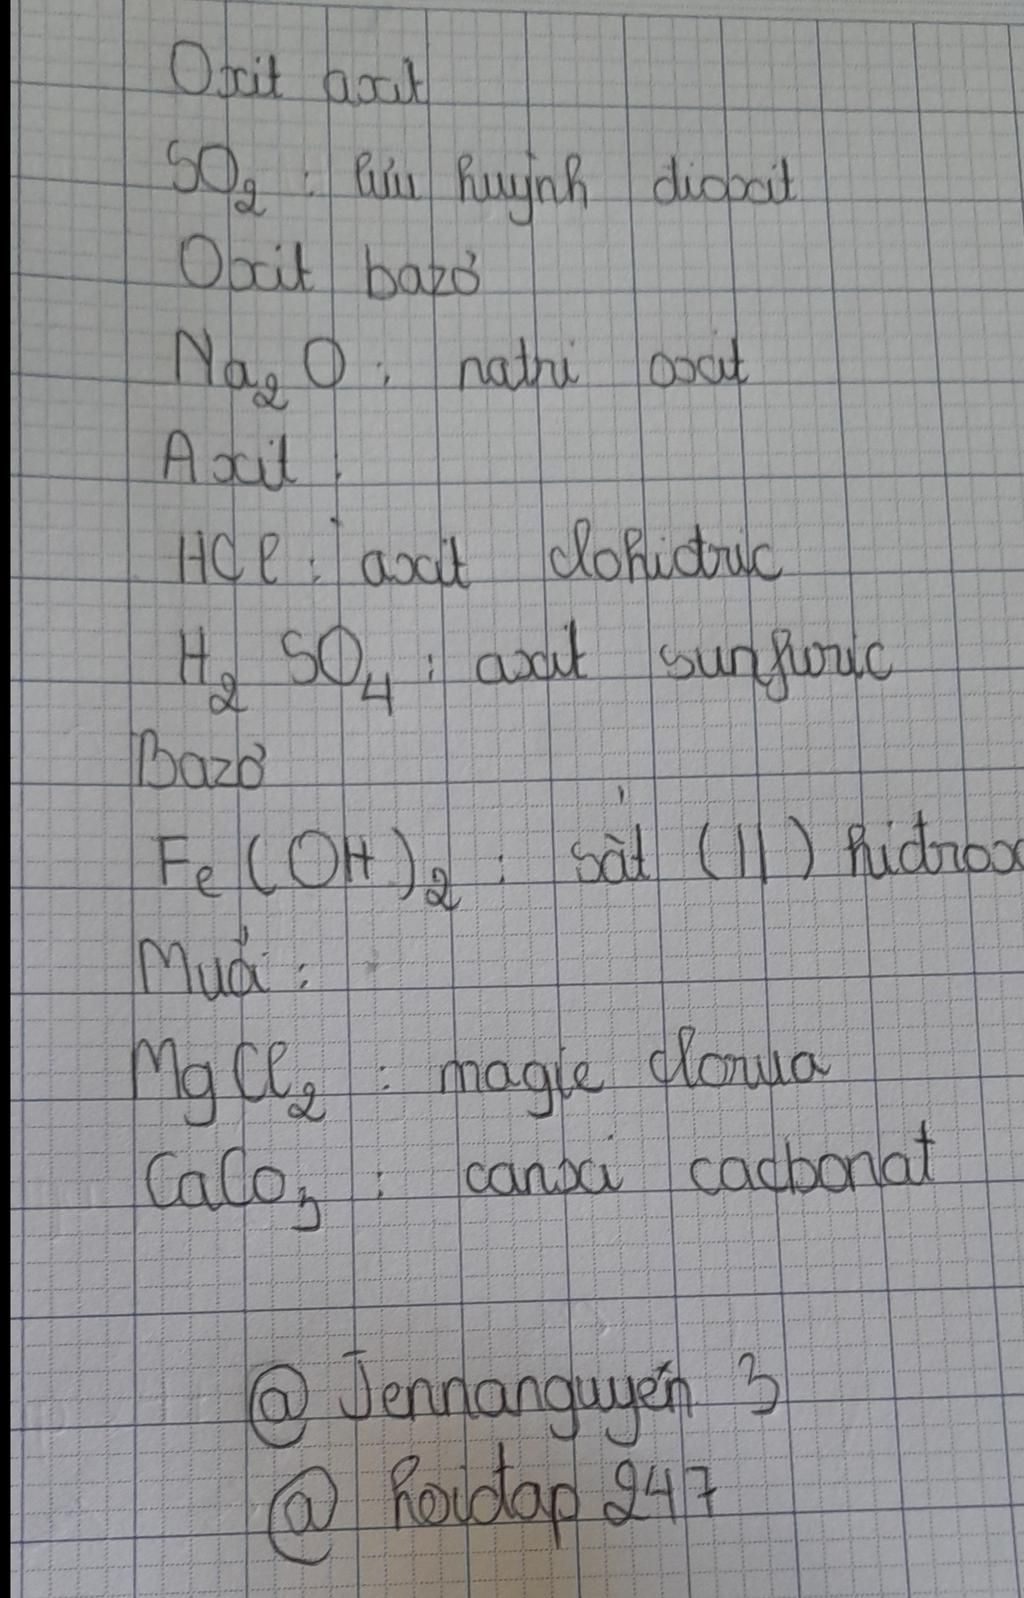 Oxit axit
SO2 : lưu huỳnh dioxit
Oxit bazơ
Na2O : natri oxit
Axit :
HCl : axit clohidric
H2SO4 : axit sunfuric
Bazơ
Fe(OH)2 : sắt (II) hidrox
Muối :
MgCl2 : magie clorua
CaCo3 : canxi cacbonat
@ Jennanguyễn 3
@ hoidap 247